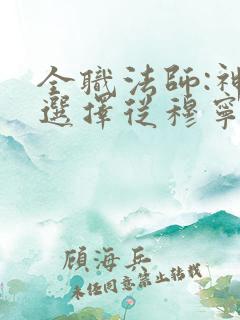 全職法師:神
選擇從穆寧
顧海兵
未經同意禁止轉載